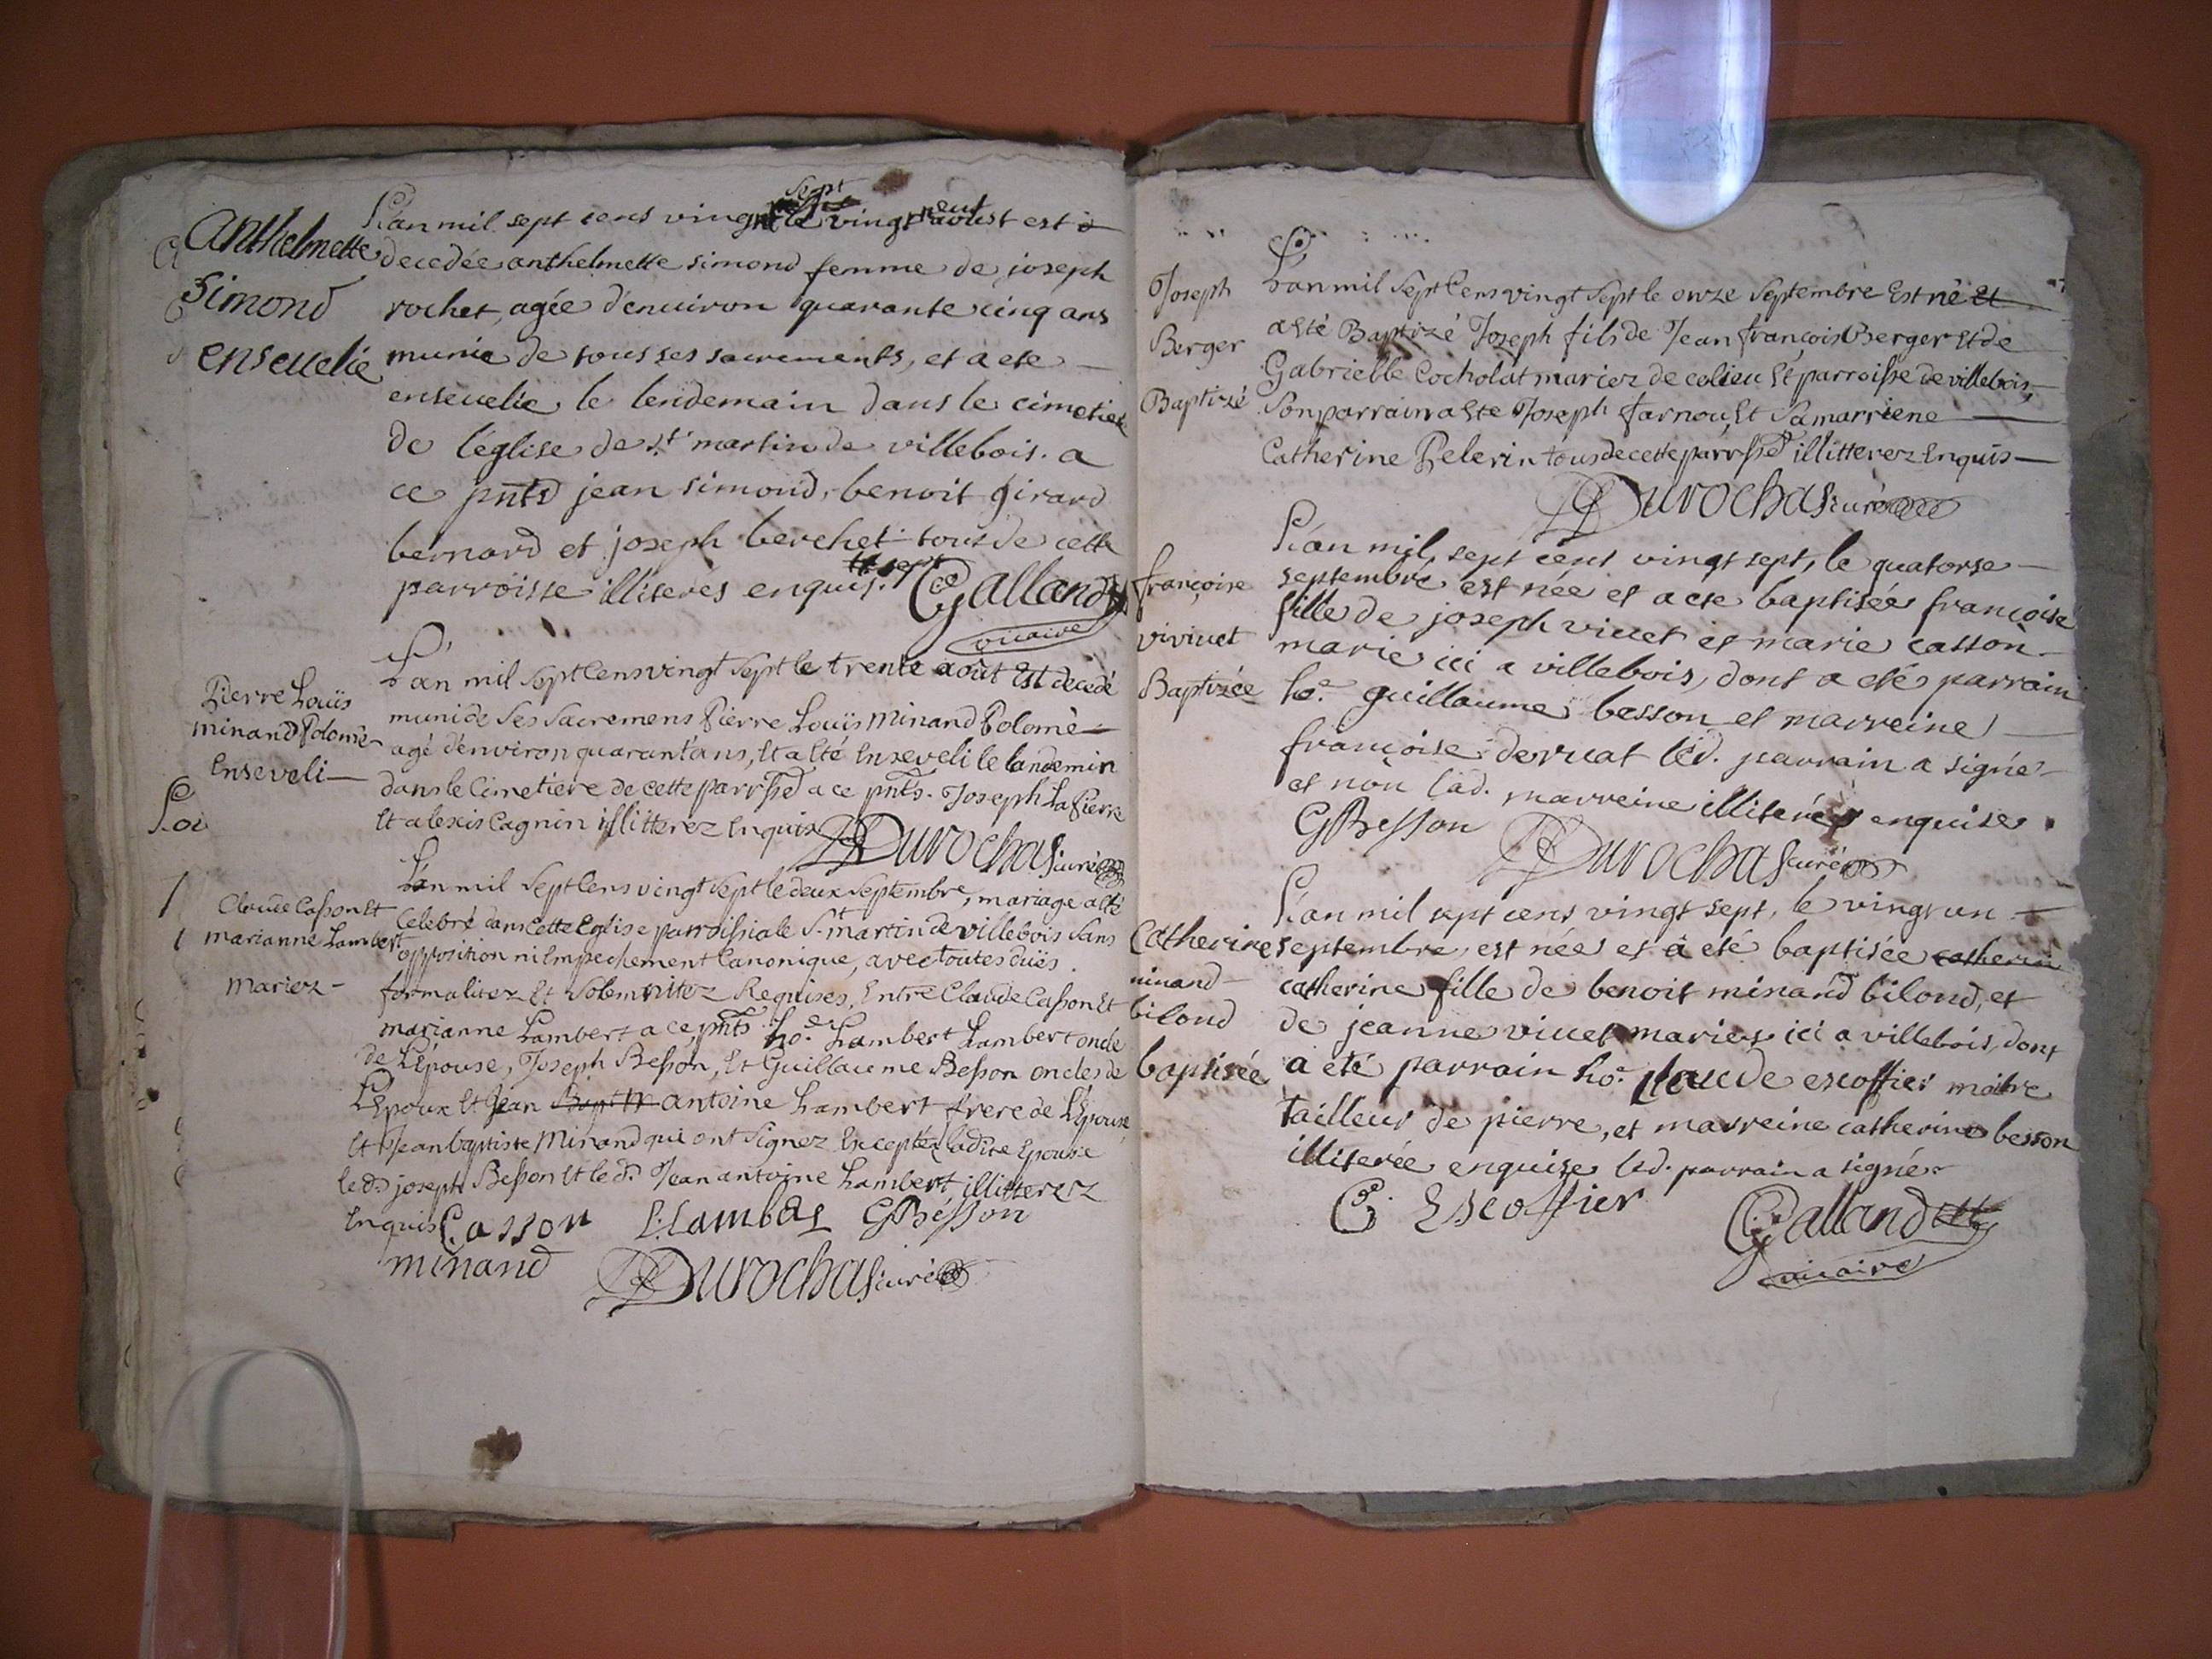 anthelmette
simond
enseuelie
L'an mil sept cens vingt sept le vingt neuf aoust est
decedée anthelmette simond femme de joseph
rochet, agée d'enuiron quarante cinq ans
munie de tous ses sacrements, et a ete
enseuelie le lendemain dans le cimetier
de l'église de st martin de villebois. a
ce pnts jean simond, benoit girard
bernard et joseph berchet tous de cette
parroisse illiterés enquis. Galland
vicaire
Pierre Louïs
minand Polome
Enseveli
L'an mil Sept Cens vingt Sept le trente août Est decedé
muni de Ses Sacremens Pierre Louïs Minand Polomè
agé d'environ quarant'ans, Et a Eté Enseveli le landemin
dans le Cimetiere de cette parrsse a ce pnts. Joseph La Pierre
Et alexis Cagnin illitterez Enquis Durochas curé
Claude Casson Et
marianne Lambert
mariez
L'an mil Sept Cens vingt Sept le deux Septembre, mariage a Eté
Celebré dans Cette Eglise parroissiale St martin de villebois Sans
opposition ni Empechement Canonique, avec toutes duës
formalitez Et Solemnitez Requises, Entre Claude Casson Et
marianne Lambert a ce pnts ho.e Lambert Lambert oncle
de L'épouse, Joseph Besson, Et Guillaume Besson oncles de
L'Epoux Et Jean Bapt antoine Lambert frere de L'Epouse,
Et Jean baptiste Minand qui ont Signez Exceptéz ladite Epouse
led. joseph Besson Et led. Jean antoine Lambert illitterez
Enquis C. asson L: Lambert GBesson
minand Durochas curé
Joseph
Berger
Baptizé
L'an mil Sept Cens vingt Sept le onze Septembre Est né Et
a Eté Baptizé Joseph fils de Jean françois Berger Et de
Gabrielle Cocholat mariez de colieu Et parroisse de villebois,
Son parrain a Ete Joseph farnou, Et Sa marriene
Catherine Pelerin tous de cette parrsse illitterez Enquis
Durochas curé
françoise
vivivet
Baptizée
L'an mil sept cens vingt sept, le quatorse
septembre est née et a ete baptisée françoise
fille de joseph vivet et marie casson
marie ici a villebois, dont a eté parrain
ho.e guillaume besson et marreine
françoise dervat led. parrain a signé
et non lad. marreine illiterée enquise.
GBesson Durochas curé
Catherine
minand
bilond
baptisée
L'an mil sept cens vingt sept, le vingt un
septembre est née et a eté baptisée catherin
catherine fille de benoit minand bilond, et
de jeanne viuet mariés ici a villebois, dont
a eté parrain ho.e claude escoffier maitre
tailleur de pierre, et marreine catherine besson
illiterée enquise led. parrain a signé
C. Escoffier Galland
vicaire